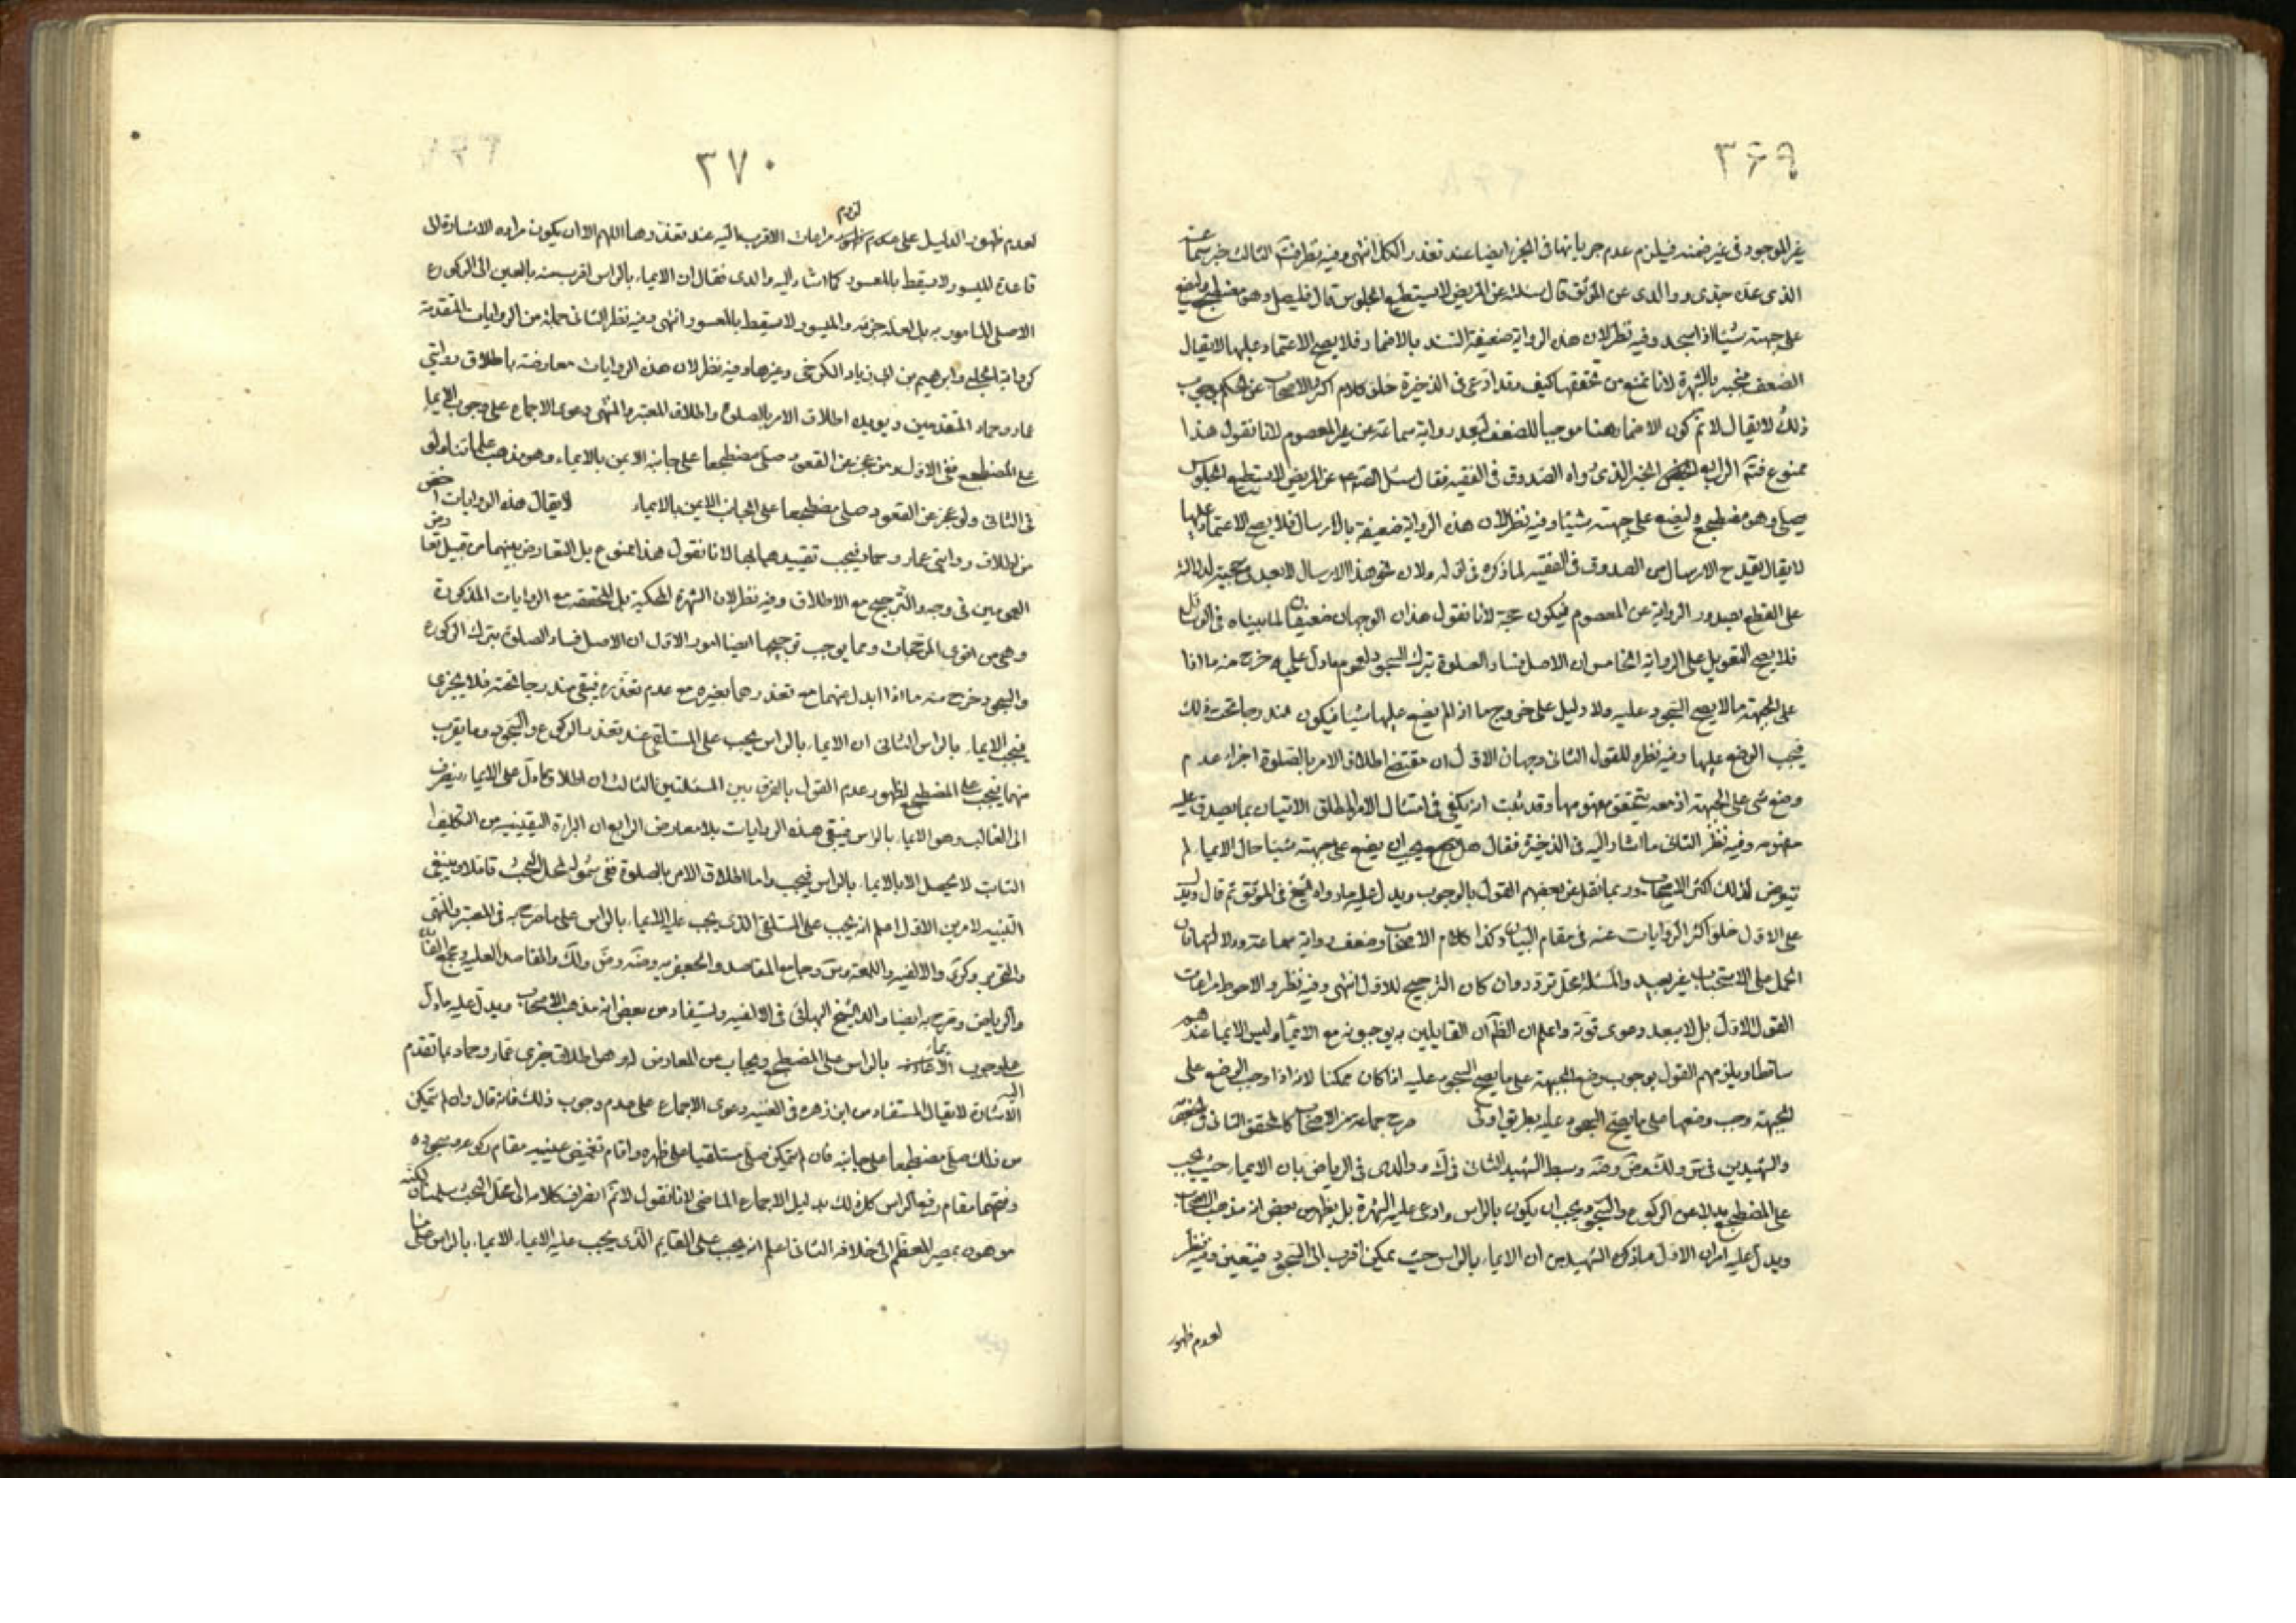 ٣۶٩
غير الموجود في غير ضمنه فيلزم عدم جريانها في الجزء ايضا عند تعذر الكل انتهى وفيه نظر فتم الثالث خبر سماعة
الذى عده جدى ووالدى من الموثق قال سئلته عن المريض لا يستطيع الجلوس قال فليصل وهو مضطجع وليضع
على جبهته شيئا اذا سجد وفيه نظر لان هذه الرواية ضعيفة السند بالاضمار فلا يصح الاعتماد عليها لا يقال
الضعف منجبر بالشهرة لانا نمنع من تحققها كيف وقد ادعى في الذخيرة خلو كلام اكثر الاصحاب عن الحكم بوجوب
ذلك لا يقال لا نم كون الاضمار هنا موجبا للضعف لبعد رواية سماعة عن غير المعصوم لانا نقول هذا
ممنوع فتم الرابع الخبر الذى رواه الصدوق في الفقيه فقال سئل الص ع عن المريض لا يستطيع الجلوس
يصلى وهو مضطجع وليضع على جبهته شيئا وفيه نظر لان هذه الرواية ضعيفة بالارسال فلا يصح الاعتماد عليها
لا يقال لا يقدح الارسال من الصدوق في الفقيه لما ذكره في اوله ولان نحو هذا الارسال لا يبعد حجيته لدلالته
على القطع بصدور الرواية عن المعصوم فيكون حجة لانا نقول هذان الوجهان ضعيفان لما بيناه في الوسائل
فلا يصح التعويل على الرواية الخامس ان الاصل فساد الصلوة بترك السجود لعموم ما دل عليه خرج منه ما اذا
على الجبهة ما لا يصح السجود عليه ولا دليل على خروج ما اذا لم يضع عليها شيئا فيكون مندرجا تحت ذلك
فيجب الوضع عليها وفيه نظر وللقول الثانى وجهان الاول ان مقتضى اطلاق الامر بالصلوة اجزاء عدم
وضع شى على الجبهة اذ معه يتحقق مفهومها وقد ثبت انه يكفى في امتثال الامر المطلق الاتيان بما يصدق عليه
مفهومه وفيه نظر الثانى ما اشار اليه في الذخيرة فقال هل يجب ان يضع على جبهته شيئا حال الايماء لم
يتعرض لذلك اكثر الاصحاب وربما نقل عن بعضهم القول بالوجوب ويدل عليه ما رواه الشيخ في الموثق ثم قال ويدل
على الاول خلو اكثر الروايات عنه في مقام البيان وكذا كلام الاصحاب وضعف رواية سماعة ودلالتها فان
الحمل على الاستحباب غير بعيد والمسئلة محل تردد وان كان الترجيح للاول انتهى وفيه نظر والاحوط مراعات
القول الاول بل لا يبعد دعوى قوته واعلم ان الظ ان القايلين به يوجبونه مع الايماء وليس الايماء عندهم
ساقطا ويلزمهم القول بوجوب وضع الجبهة على ما يصح السجود عليه اذا كان ممكنا لانه اذا وجب الوضع على
الجبهة وجب وضعها على ما يصح السجود عليه بطريق اولى صرح جماعة من الاصحاب كالمحقق الثانى في
والشهيدين في س ولك وض وضه وسبط الشهيد الثانى في ك ووالدى في الرياض بان الايماء حيث يجب
على المضطجع بدلا عن الركوع والسجود يجب ان يكون بالراس وادعى عليه الشهرة بل يظهر من بعض انه مذهب الاصحاب
ويدل عليه امران الاول ما ذكره الشهيد من ان الايماء بالراس حيث يمكن اقرب الى السجود فيتعين وفيه نظر
لعدم ظهور
٣٧٠
لعدم ظهور الدليل على لزوم مراعات الاقرب اليه عند تعذرهما اللهم الا ان يكون مراده الاشارة الى
قاعدة الميسور لا يسقط بالمعسور كما اشار اليه والدى فقال ان الايماء بالراس اقرب منه بالعين الى الركوع
الاصلى المامور به بل لعله جزئه والميسور لا يسقط بالمعسور انتهى وفيه نظر الثانى جملة من الروايات المتقدمة
كرواية الحلبى وابرهيم بن ابى زياد الكرخى وغيرها وفيه نظر لان هذه الروايات معارضة باطلاق روايتى
عمار وحماد المتقدمين ويويده اطلاق الامر بالصلوة واطلاق المعتبر والمنتهى دعوى الاجماع على وجوب الايماء
على المضطجع ففى الاول ومن عجز عن القعود صلى مضطجعا على جانبه الايمن بالايماء وهو مذهب علمائنا ولو
في الثانى ولو عجز عن القعود صلى مضطجعا على الجانب الايمن بالايماء لا يقال هذه الروايات اخص
من اطلاق روايتى عمار وحماد فيجب تقييدهما بها لانا نقول هذا ممنوع بل التعارض بينهما من قبيل تعارض
العمومين في وجه والترجيح مع الاطلاق وفيه نظر لان الشهرة المحكية بل المحققة مع الروايات المذكورة
وهى من اقوى المرجحات ومما يوجب ترجيحها ايضا امور الاول ان الاصل فساد الصلوة بترك الركوع
والسجود خرج منه ما اذا ابدل عنهما مع تعذرهما بغيره مع عدم تعذره فيبقى مندرجا تحته فلا يجزى
فيجب الايماء بالراس الثانى ان الايماء بالراس يجب على المستلقى عند تعذر الركوع والسجود وما يقرب
منهما فيجب على المضطجع لظهور عدم القول بالفرق بين المسئلتين الثالث ان اطلاق ما دل على الايماء ينصرف
الى الغالب وهو الايماء بالراس فيبقى هذه الروايات بلا معارض الرابع ان البرائة اليقينية من التكليف
الثابت لا يحصل الا بالايماء بالراس فيجب واما اطلاق الامر بالصلوة ففى شموله لمحل البحث تامل وينبغى
التنبيه لامرين الاول اعلم انه يجب على المستلقى الذى يجب عليه الايماء بالراس على ما صرح به في المعتبر والمنتهى
والتحرير وكرى والالفيه واللمعة وس وجامع المقاصد والجعفريه وضه وض ولك والمقاصد العليه ومجمع الفائدة
والرياض وصرح به ايضا والد الشيخ البهائى في الالفيه ويستفاد من بعض انه مذهب الاصحاب ويدل عليه ما دل
على وجوب الايماء بالراس على المضطجع ويجاب عن المعارض له وهو اطلاق خبرى عمار وحماد بما تقدم
اليه الاشارة لا يقال المستفاد من ابن زهره في الغنيه دعوى الاجماع على عدم وجوب ذلك فانه قال وان لم يتمكن
من ذلك صلى مضطجعا على جانبه فان لم يتمكن صلى مستلقيا على ظهره واقام تغميض عينيه مقام ركوعه وسجوده
وفتحهما مقام رفع الراس كل ذلك بدليل الاجماع الماضى لانا نقول لا نم انصراف كلامه الى محل البحث سلمنا لكنه
موهون بمصير المعظم الى خلافه الثانى اعلم انه يجب على القايم الذى يجب عليه الايماء الايماء بالراس